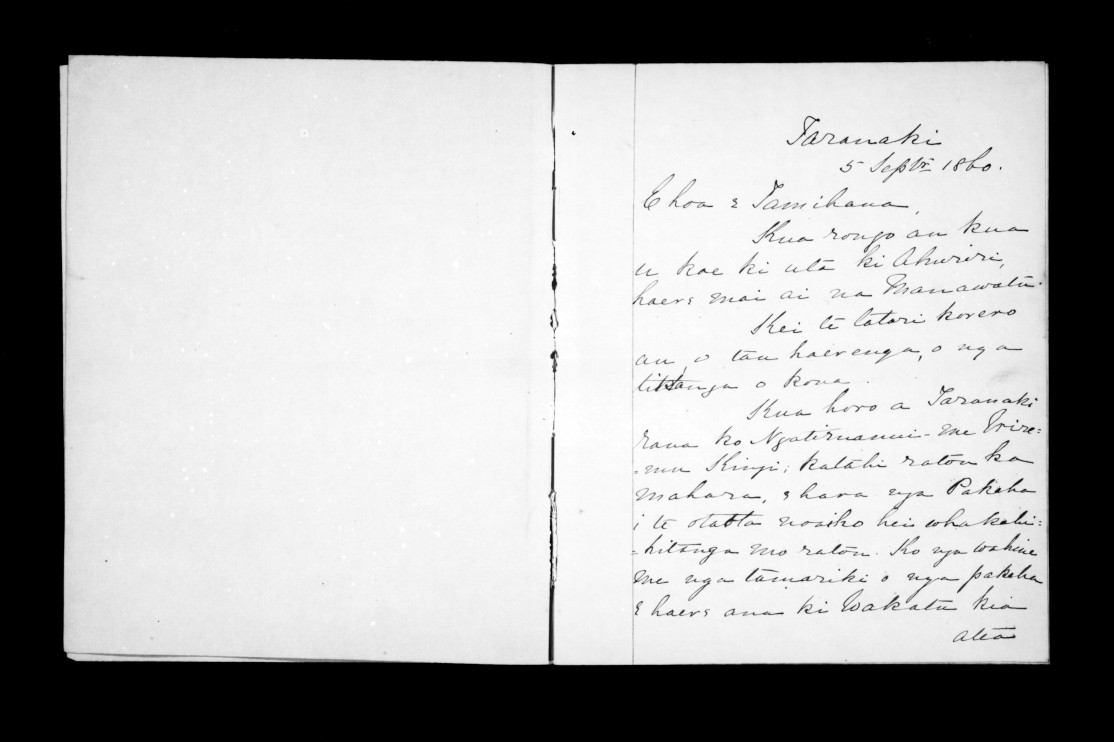 Taranaki
5 Septr 1860.
E hoa e Tamihana,
Kua rongo au kua
u koe ki uta ki Ahuriri,
haere mai ai na Manawatu.
Kei te tatari korero
au, o tau haerenga, o nga
tikanga o kona.
Kua horo a Taranaki
rana ko Ngatiruanui - me Wire=
=mu Kingi; katahi ratou ka
mahara, e hara nga Pakeha
i te otaota noaiho hei whakahi=
=hitanga mo ratou. Ko nga wahine
me nga tamariki o nga pakeha
e haere ana ki Wakatu kia
atea